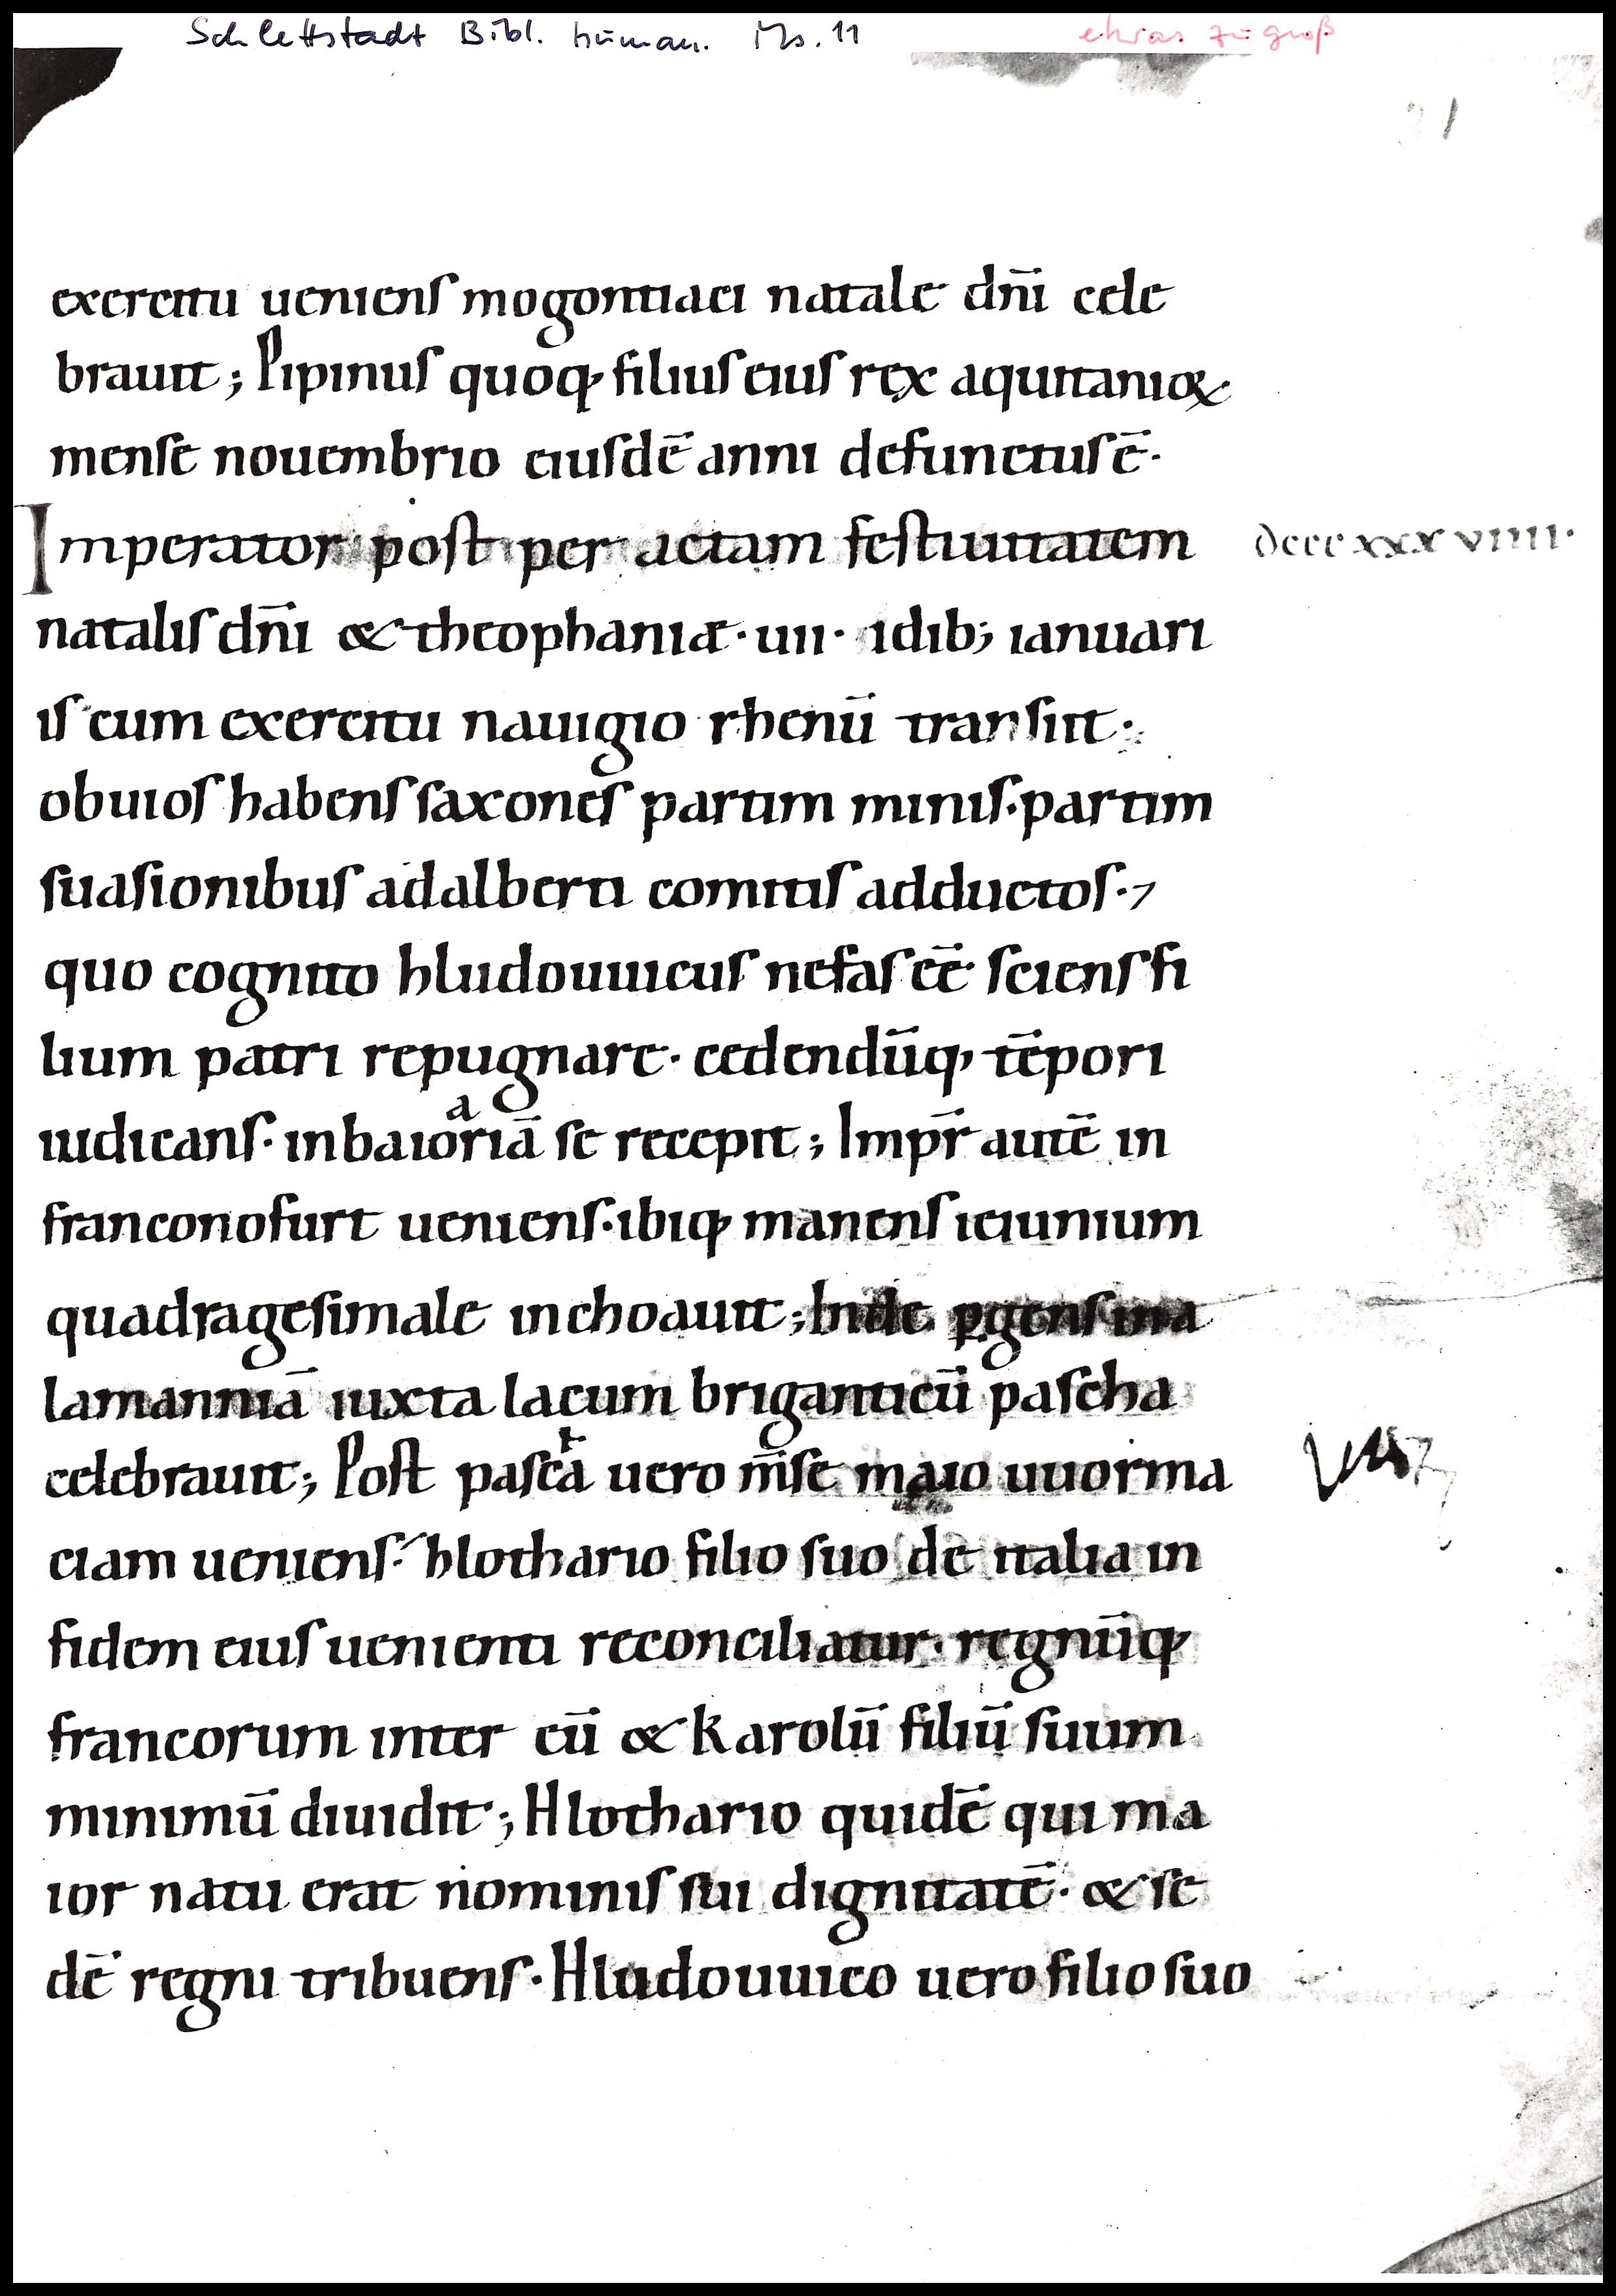 Schlettstadt Bibl. human. Ms. 11 etwas zu groß
exercitu ueniens mogontiaci natale dn̄i cele
brauit; Pipinus quoq; filius eius rex aquitanioꝝ
mense nouembrio eiusdē anni defunctus ē.
Imperator post per actam festiuitatem dcccxxxviiii.
natalis dn̄i & theophaniæ. uii. idib; ianuari
is cum exercitu nauigio rhenū transiit.
obuios habens saxones partim minis. partim
suasionibus adalberti comitis adductos.,
quo cognito hludouuicus nefas eē sciens fi
lium patri repugnare. cedendūq; tēpori
iudicans. in baioariā se recepit; Imp̄r autē in
franconofurt ueniens. ibiq; manens ieiunium
quadragesimale inchoauit; Inde ꝑgens in a
lamanniā iuxta lacum briganticū pascha
celebrauit; Post pascha uero m̄se maio uuorma
ciam ueniens. hlothario filio suo de italia in
fidem eius uenienti reconciliatur. regnūq;
francorum inter eū & karolū filiū suum
minimū diuidit; Hlothario quidē qui ma
ior natu erat nominis sui dignitatē. & se
dē regni tribuens. Hludouuico uero filio suo